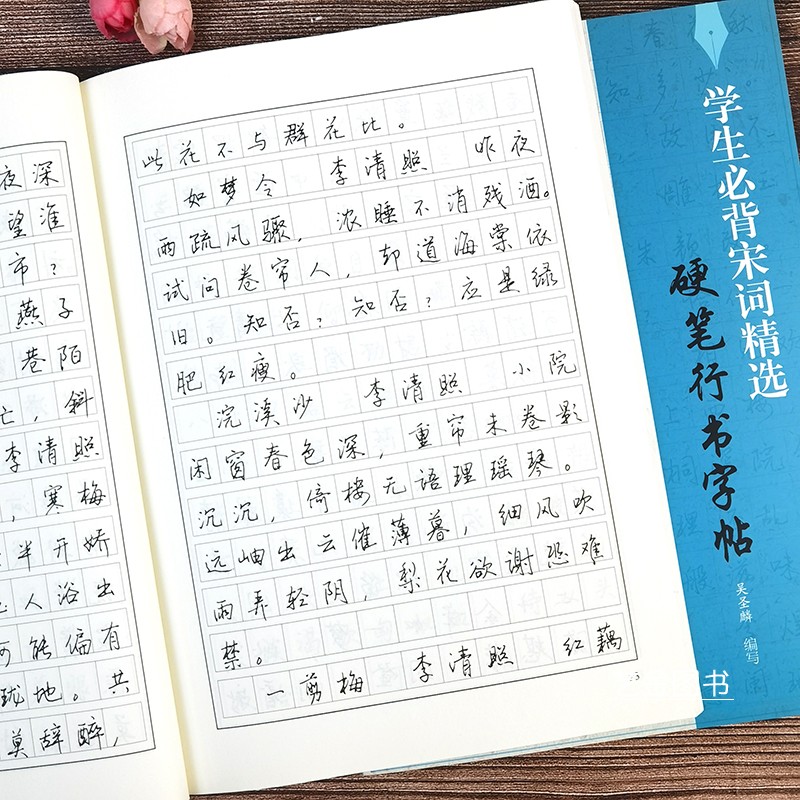 夜深
望淮
市？
燕子
巷陌
亡，斜
李清照
，寒梅
半开娇
人浴出
何能偏有
珑地。共
莫辞醉，
此花不与群花比。
如梦令 李清照 昨夜
雨疏风骤，浓睡不消残酒。
试问卷帘人，却道海棠依
旧。知否？知否？应是绿
肥红瘦。
浣溪沙 李清照 小院
闲窗春色深，重帘未卷影
沉沉，倚楼无语理瑶琴。
远岫出云催薄暮，细风吹
雨弄轻阴，梨花欲谢恐难
禁。
一剪梅 李清照 红藕
学生必背宋词精选
硬笔行书字帖
吴圣麟 编写
书